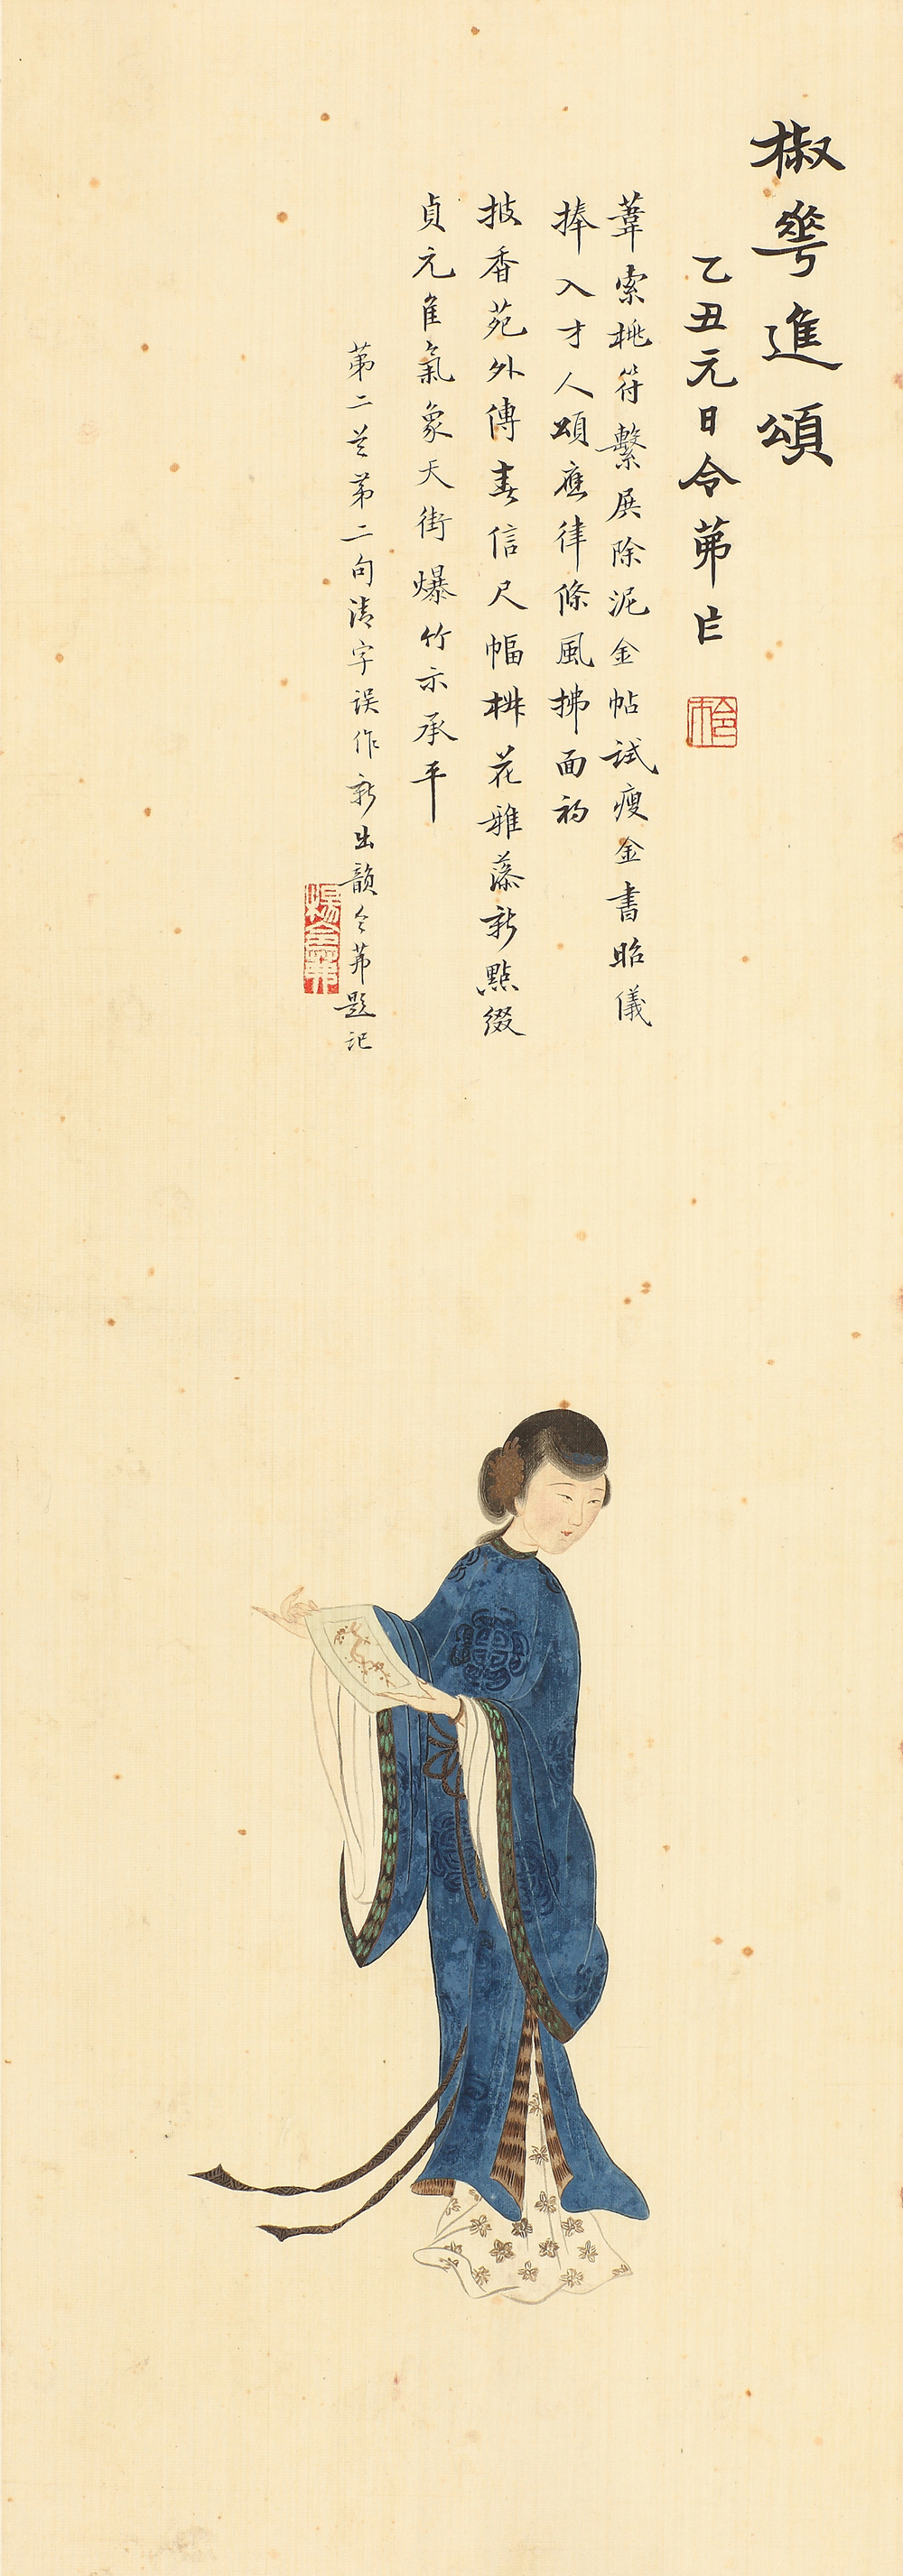 椒華進頌
乙丑元日令茀乍
葦索桃符繫展除泥金帖試瘦金書昭儀
捧入才人頌應律條風拂面初
披香苑外傳春信尺幅梅花雅藻新點綴
貞元佳氣象天街爆竹示承平
第二首第二句清字误作新出韻令茀題記
楊令茀